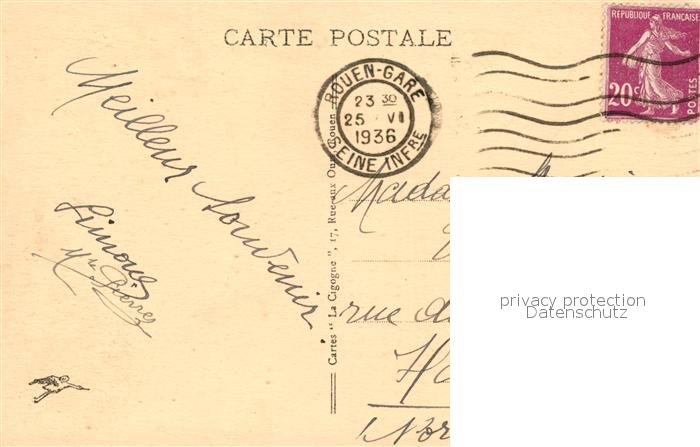 CARTE POSTALE
RÉPUBLIQUE FRANÇAISE
20c
POSTES
ROUEN-GARE
23 30
25 VI
1936
SEINE INFRE
Meilleur Souvenir
Simone
Pierre
Cartes " La Cigogne ", 17, Rue aux Ours, Rouen
Mada
rue d
Ha
Nor
privacy protection
Datenschutz